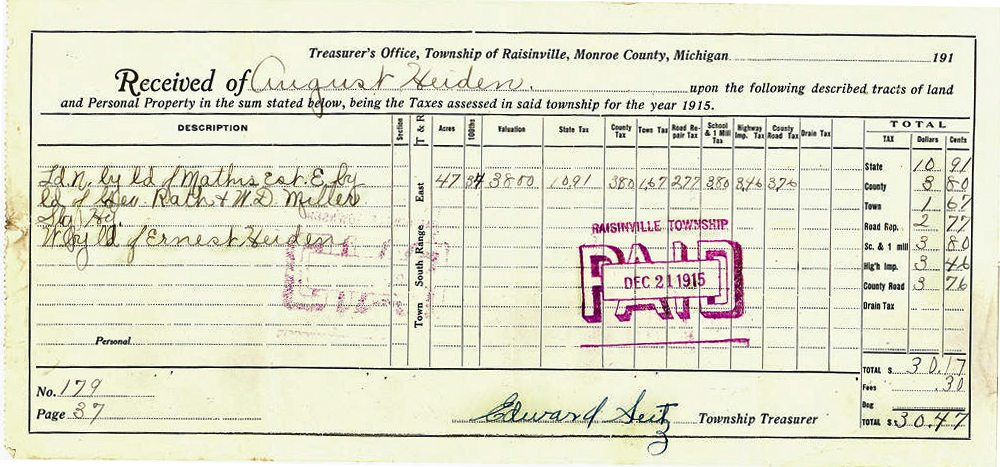 Treasurer's Office, Township of Raisinville, Monroe County, Michigan 191
Received of August Heiden. upon the following described tracts of land
and Personal Property in the sum stated below, being the Taxes assessed in said township for the year 1915.
DESCRIPTION Section T & R Acres 100ths Valuation State Tax County Tax Town Tax Road Repair Tax School & 1 Mill Tax Highway Imp. Tax County Road Tax Drain Tax TOTAL
TAX Dollars Cents
Ld. N. by ld of Mathis Est. E. by East 47 34 3800 10 91 3 80 1 67 2 77 3 80 3 46 3 76 State 10 91
ld of Geo. Rath & W. D. Miller County 3 80
S. by Hy. Town 1 67
W. by ld of Ernest Heiden Town South Range Road Rep. 2 77
RAISINVILLE TOWNSHIP
PAID
DEC 21 1915
Sc. & 1 mill 3 80
High Imp. 3 46
County Road 3 76
Drain Tax
Personal
TOTAL $ 30.17
Fees .30
Dog
TOTAL $ 30.47
No. 179
Page 37
Edward Seitz Township Treasurer